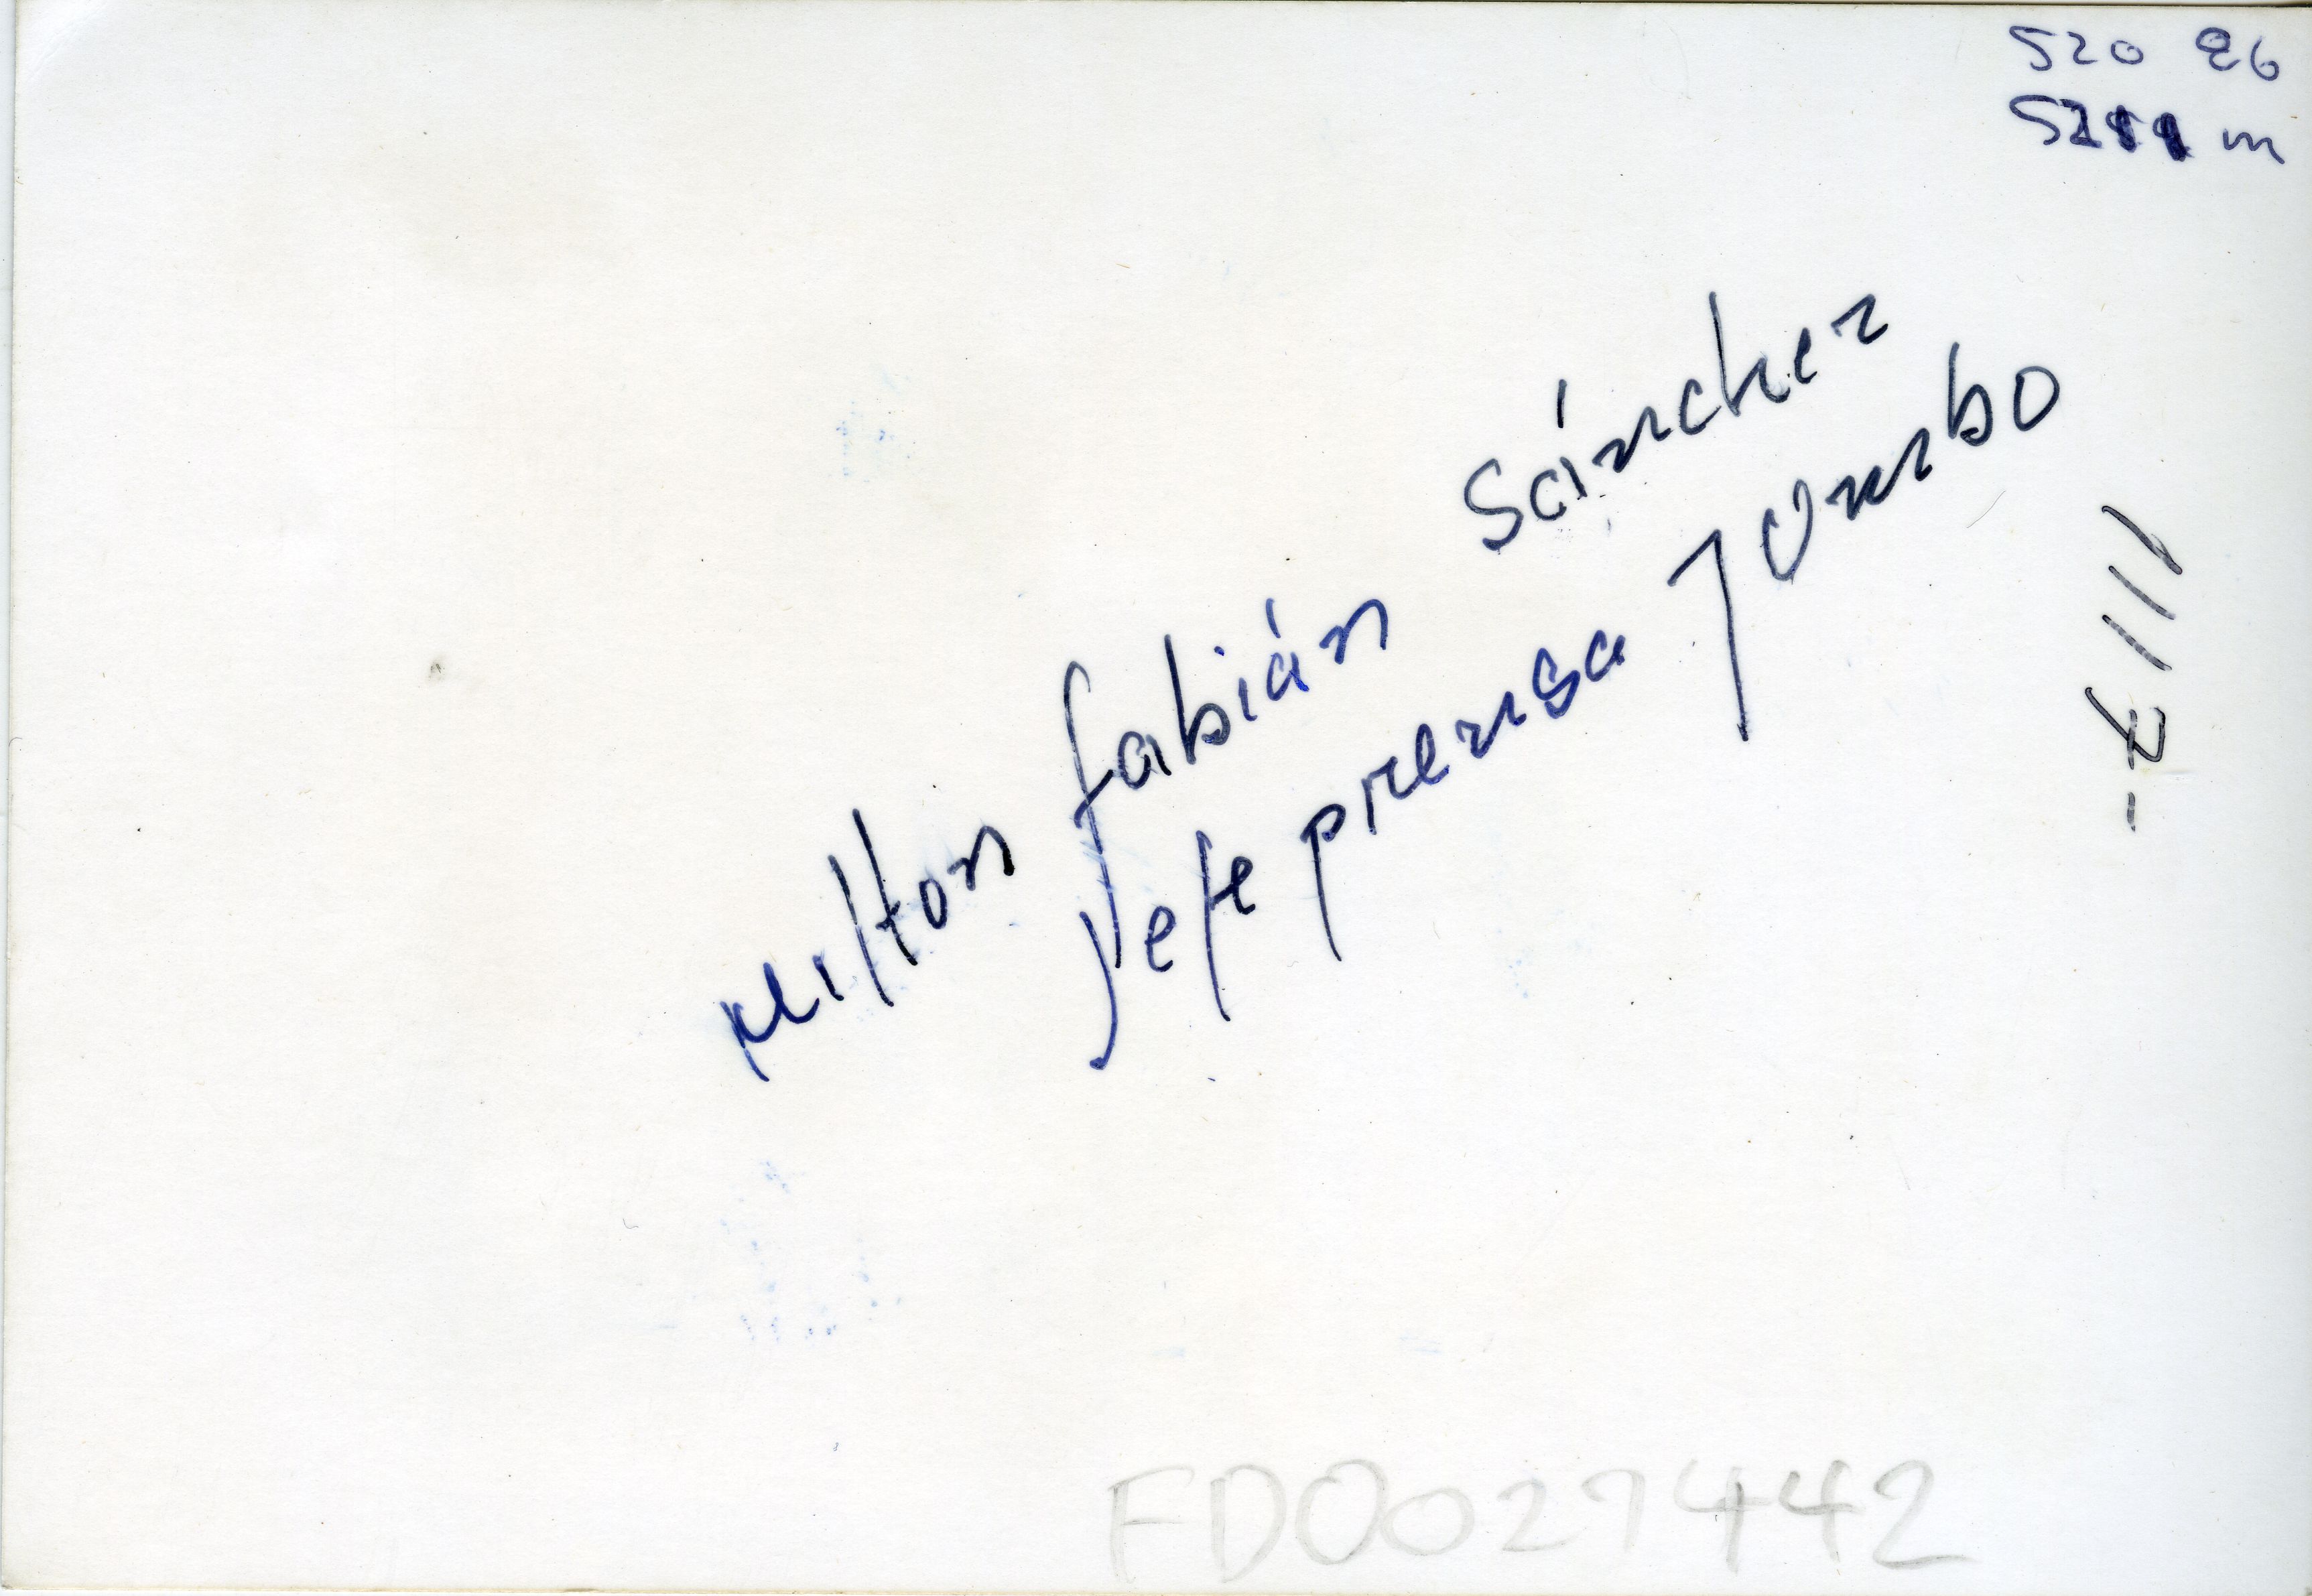 520 26
Milton fabián Sánchez
Jefe prensa Yumbo
1117-
FD0027442